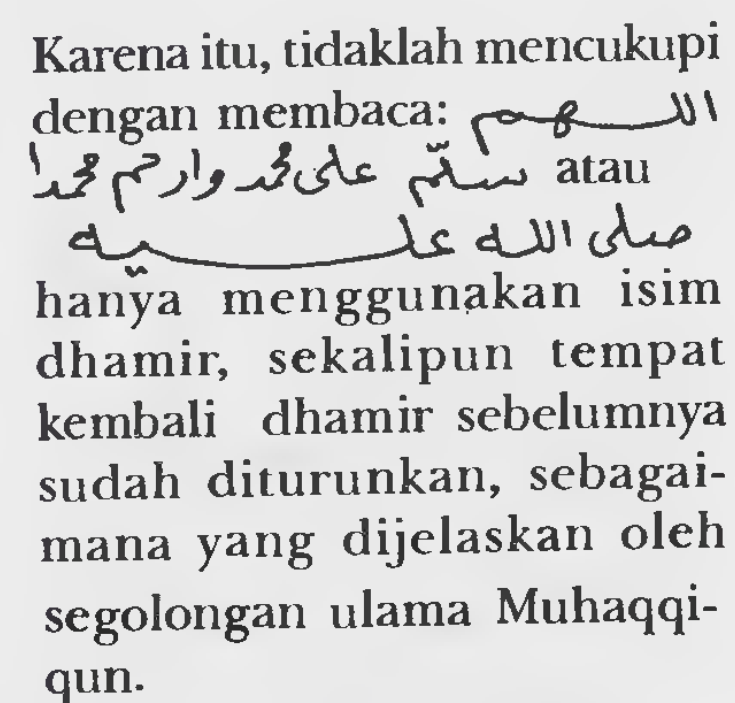 Karena itu, tidaklah mencukupi
dengan membaca: اللـــهم
سلّم على محمد وارحم محمدا atau
صلى الله علـــــيه
hanya menggunakan isim
dhamir, sekalipun tempat
kembali dhamir sebelumnya
sudah diturunkan, sebagai-
mana yang dijelaskan oleh
segolongan ulama Muhaqqi-
qun.